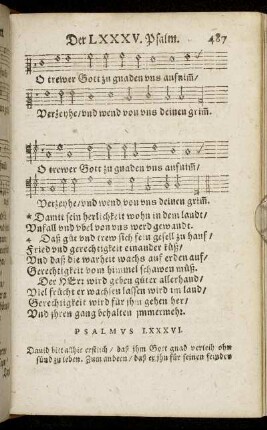 Der LXXXV. Psalm. 487
O trewer Gott zu gnaden vns aufnim̃/
Verzeyhe/vnd wend von vns deinen grim̃.
O trewer Gott zu gnaden vns aufnim̃/
Verzeyhe/vnd wend von vns deinen grim̃.
* Damit sein herlicheit wohn in dem landt/
Vnfall vnd vbel von vns werd gewandt.
* Daß güt vnd trew sich fein gesell zu hauf/
Fried vnd gerechtigkeit einander küß/
Vnd daß die warheit wachs auf erden auf/
Gerechtigkeit vom himmel schawen müß.
Der HErr wird geben güter allerhand/
Viel frücht er wachsen lassen wird im land/
Gerechtigkeit wird für ihm gehen her/
Vnd ihren gang behalten immermehr.
PSALMVS LXXXVI.
Dauid bitt allhie erstlich / daß ihm Gott gnad verleih ohn
sünd zu leben. Zum andern / daß er ihn für seinen feinden